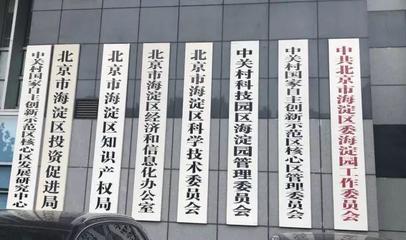 中关村国家自主创新示范区核心区发展研究中心
北京市海淀区投资促进局
北京市海淀区知识产权局
北京市海淀区经济和信息化办公室
北京市海淀区科学技术委员会
中关村科技园区海淀园管理委员会
中关村国家自主创新示范区核心区管理委员会
中共北京市海淀区委海淀园工作委员会